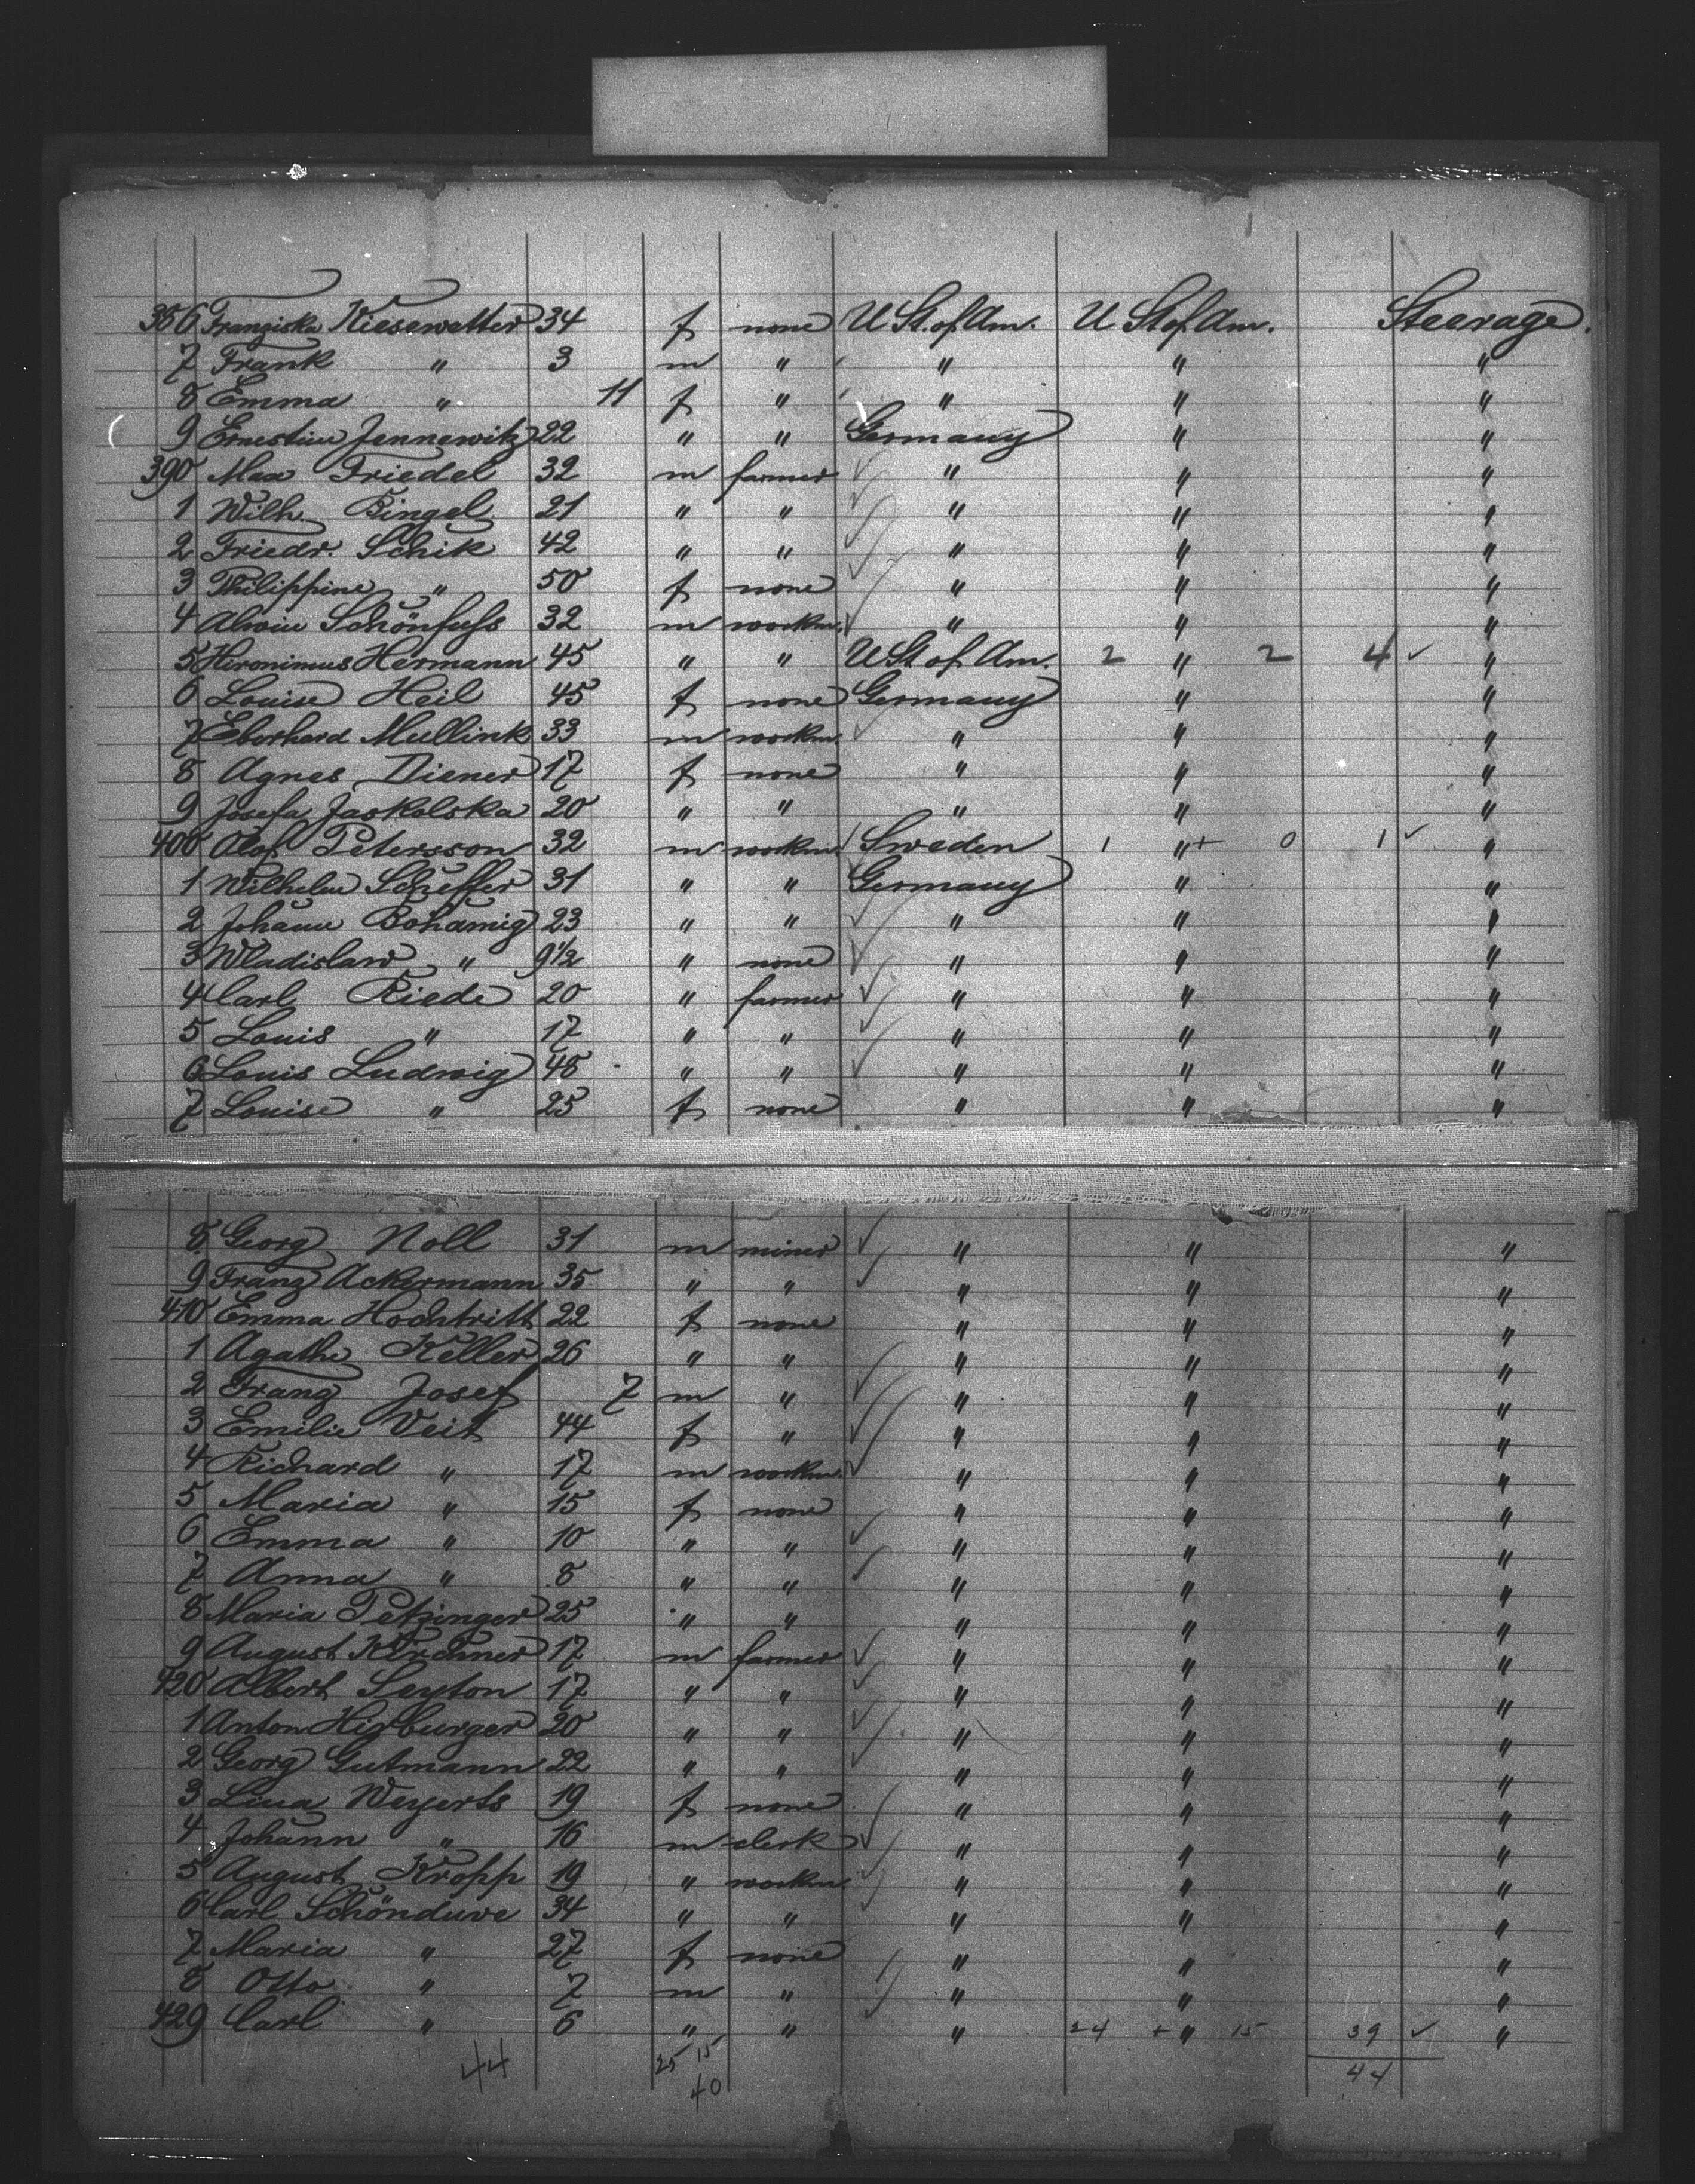 386 Franziska Kiesewetter 34 f none U St. of Am. U St of Am. Steerage.
7 Frank " 3 m " " " "
8 Emma " 11 f " " " "
9 Ernestine Jennewitz 22 " " Germany " "
390 Max Friedel 32 m farmer " " "
1 Wilh. Bingel 21 " " " " "
2 Friedr. Schik 42 " " " " "
3 Philippine " 50 f none " " "
4 Alwin Schönfuss 32 m workm. " " "
5 Hironimus Hermann 45 " " U St of Am. 2 " 2 4 ✓ "
6 Louise Heil 45 f none Germany " "
7 Eberhard Mullink 33 m workm. " " "
8 Agnes Diener 17 f none " " "
9 Josefa Jaskolska 20 " " " " "
400 Olof Petersson 32 m workm. Sweden 1 " + 0 1 ✓ "
1 Wilhelm Scheffer 31 " " Germany " "
2 Johann Bohamig 23 " " " " "
3 Wladislaw " 9½ " none " " "
4 Carl Riede 20 " farmer " " "
5 Louis " 17 " " " " "
6 Louis Ludwig 48 " " " " "
7 Louise " 25 f none " " "
8 Georg Noll 31 m miner " " "
9 Franz Ackermann 35 " " " " "
410 Emma Hochtritt 22 f none " " "
1 Agathe Keller 26 " " " " "
2 Franz Josef 7 m " " " "
3 Emilie Veit 44 f " " " "
4 Richard " 17 m workm. " " "
5 Maria " 15 f none " " "
6 Emma " 10 " " " " "
7 Anna " 8 " " " " "
8 Maria Petzinger 25 " " " " "
9 August Kirchner 17 m farmer " " "
420 Albert Seyton 17 " " " " "
1 Anton Hirburger 20 " " " " "
2 Georg Gutmann 22 " " " " "
3 Lina Weyerts 19 f none " " "
4 Johann " 16 m clerk " " "
5 August Kropp 19 " workm " " "
6 Carl Schönduve 34 " " " " "
7 Maria " 27 f none " " "
8 Otto " 7 m " " " "
429 Carl " 6 " " " 24 + " 15 39 ✓ "
44 25 15 44
40